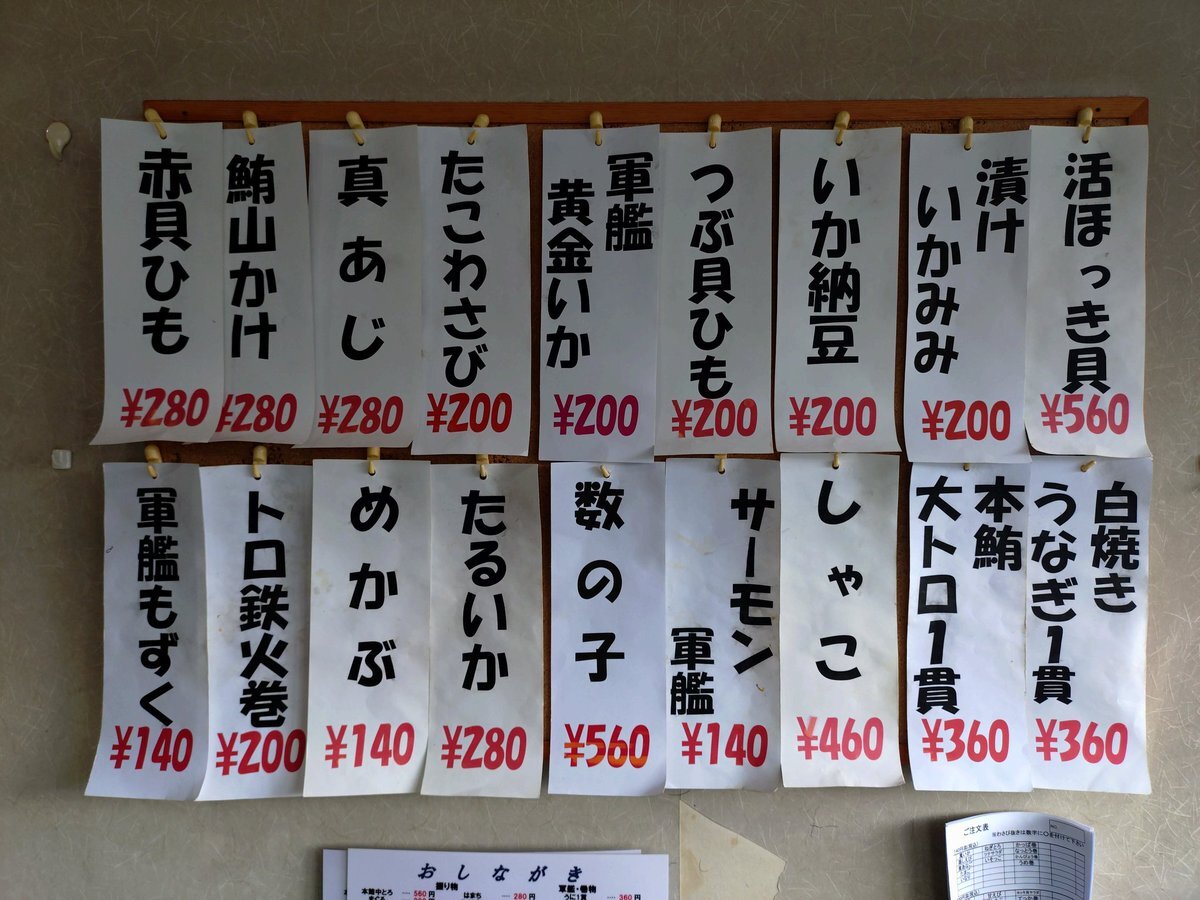 赤貝ひも
¥280
鮪山かけ
¥280
真あじ
¥280
たこわさび
¥200
軍艦
黄金いか
¥200
つぶ貝ひも
¥200
いか納豆
¥200
漬け
いかみみ
¥200
活ほっき貝
¥560
軍艦もずく
¥140
トロ鉄火巻
¥200
めかぶ
¥140
たるいか
¥280
数の子
¥560
サーモン
軍艦
¥140
しゃこ
¥460
本鮪
大トロ1貫
¥360
白焼き
うなぎ1貫
¥360
おしながき
握り物
軍艦・巻物
本鮪中とろ 560円
はまち 280円
うに1貫 360円
ご注文表
NO.